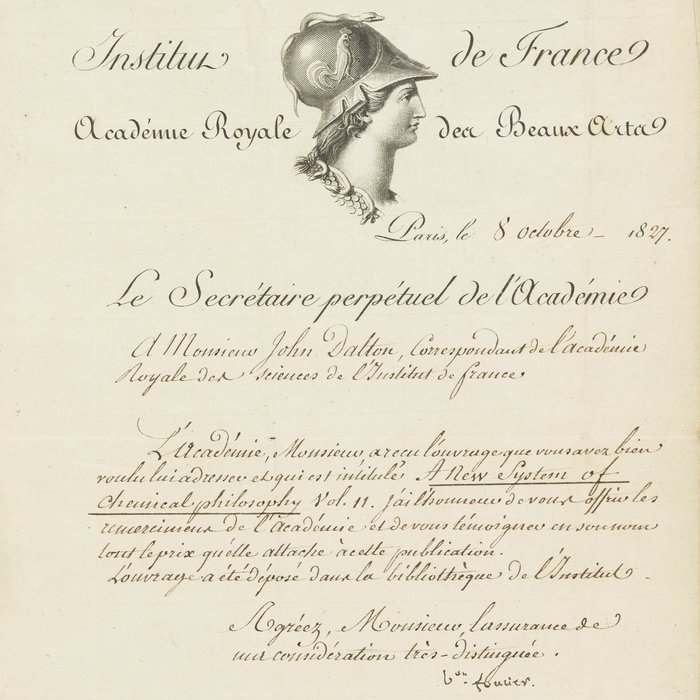 Institut de France
Académie Royale des Beaux Arts
Paris, le 8 octobre 1827.
Le Secrétaire perpétuel de l'Académie
A Monsieur John Dalton, Correspondant de l'académie
Royale des sciences de l'Institut de france
L'académie, Monsieur a recu l'ouvrage que vous avez bien
voulu lui adresser et qui est intitulé A New System of
Chemical philosophy Vol. 11. j'ai l'honneur de vous offrir les
remerciemens de l'académie et de vous témoigner en son nom
tout le prix qu'elle attache à cette publication.
L'ouvrage a été déposé dans la bibliothèque de l'Institut.
Agréez, Monsieur, l'assurance de
ma considération très-distinguée.
bon fourier.